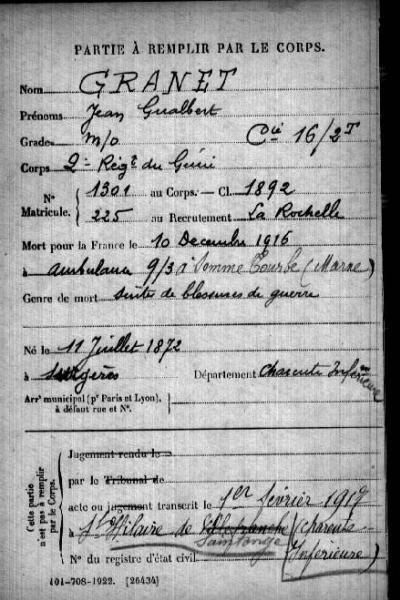 PARTIE À REMPLIR PAR LE CORPS.
Nom GRANET
Prénoms Jean Gualbert
Grade m/o Cie 16/2T
Corps 2e Régt du Génie
N° Matricule. 1301 au Corps. — Cl. 1892
225 au Recrutement La Rochelle
Mort pour la France le 10 Decembre 1916
à ambulance 9/3 à Somme Tourbe (Marne)
Genre de mort suites de blessures de guerre
Né le 11 Juillet 1872
à Surgères Département Charente Inférieure
Arrt municipal (pr Paris et Lyon), à défaut rue et N°.
Cette partie n'est pas à remplir par le Corps.
Jugement rendu le
par le Tribunal de
acte ou jugement transcrit le 1er février 1917
à St Hilaire de Villefranche (Charente
Saintonge
N° du registre d'état civil Inférieure)
101-708-1922. [26434]